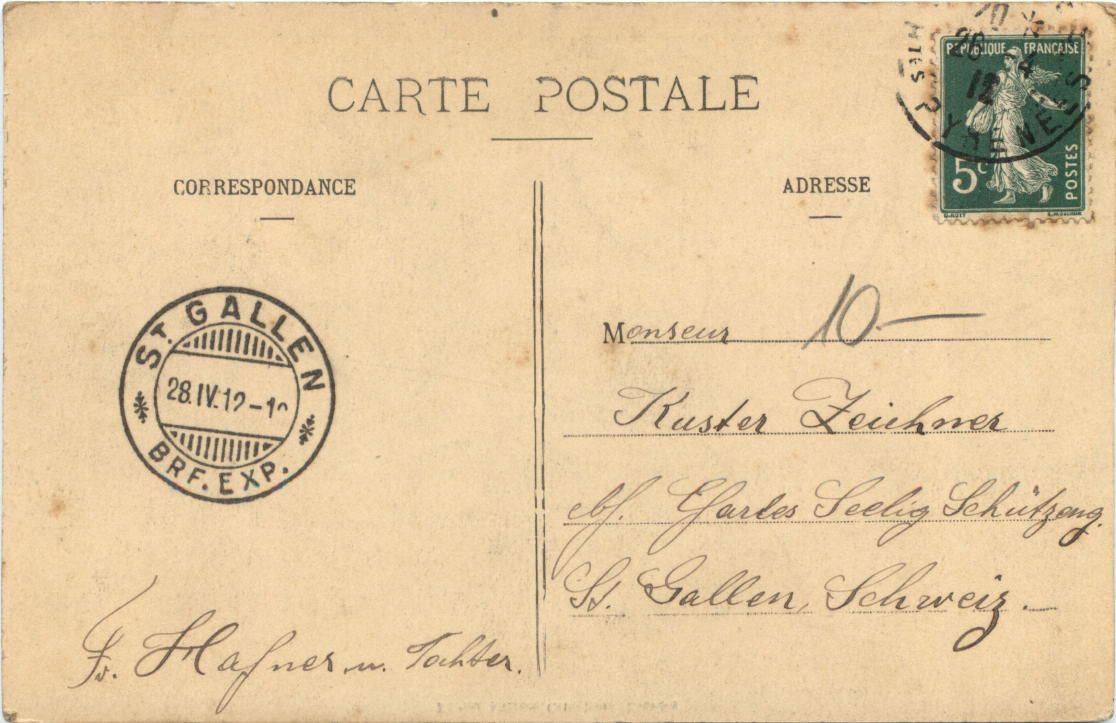 CARTE POSTALE
CORRESPONDANCE
ADRESSE
REPUBLIQUE FRANÇAISE
5c
POSTES
PYRENEES
12
ST GALLEN
28.IV.12
BRF. EXP.
10—
Monseur
Kuster Zeichner
Charles Seelig Schützeng.
St. Gallen, Schweiz.
Fr. Hafner u. Tochter.